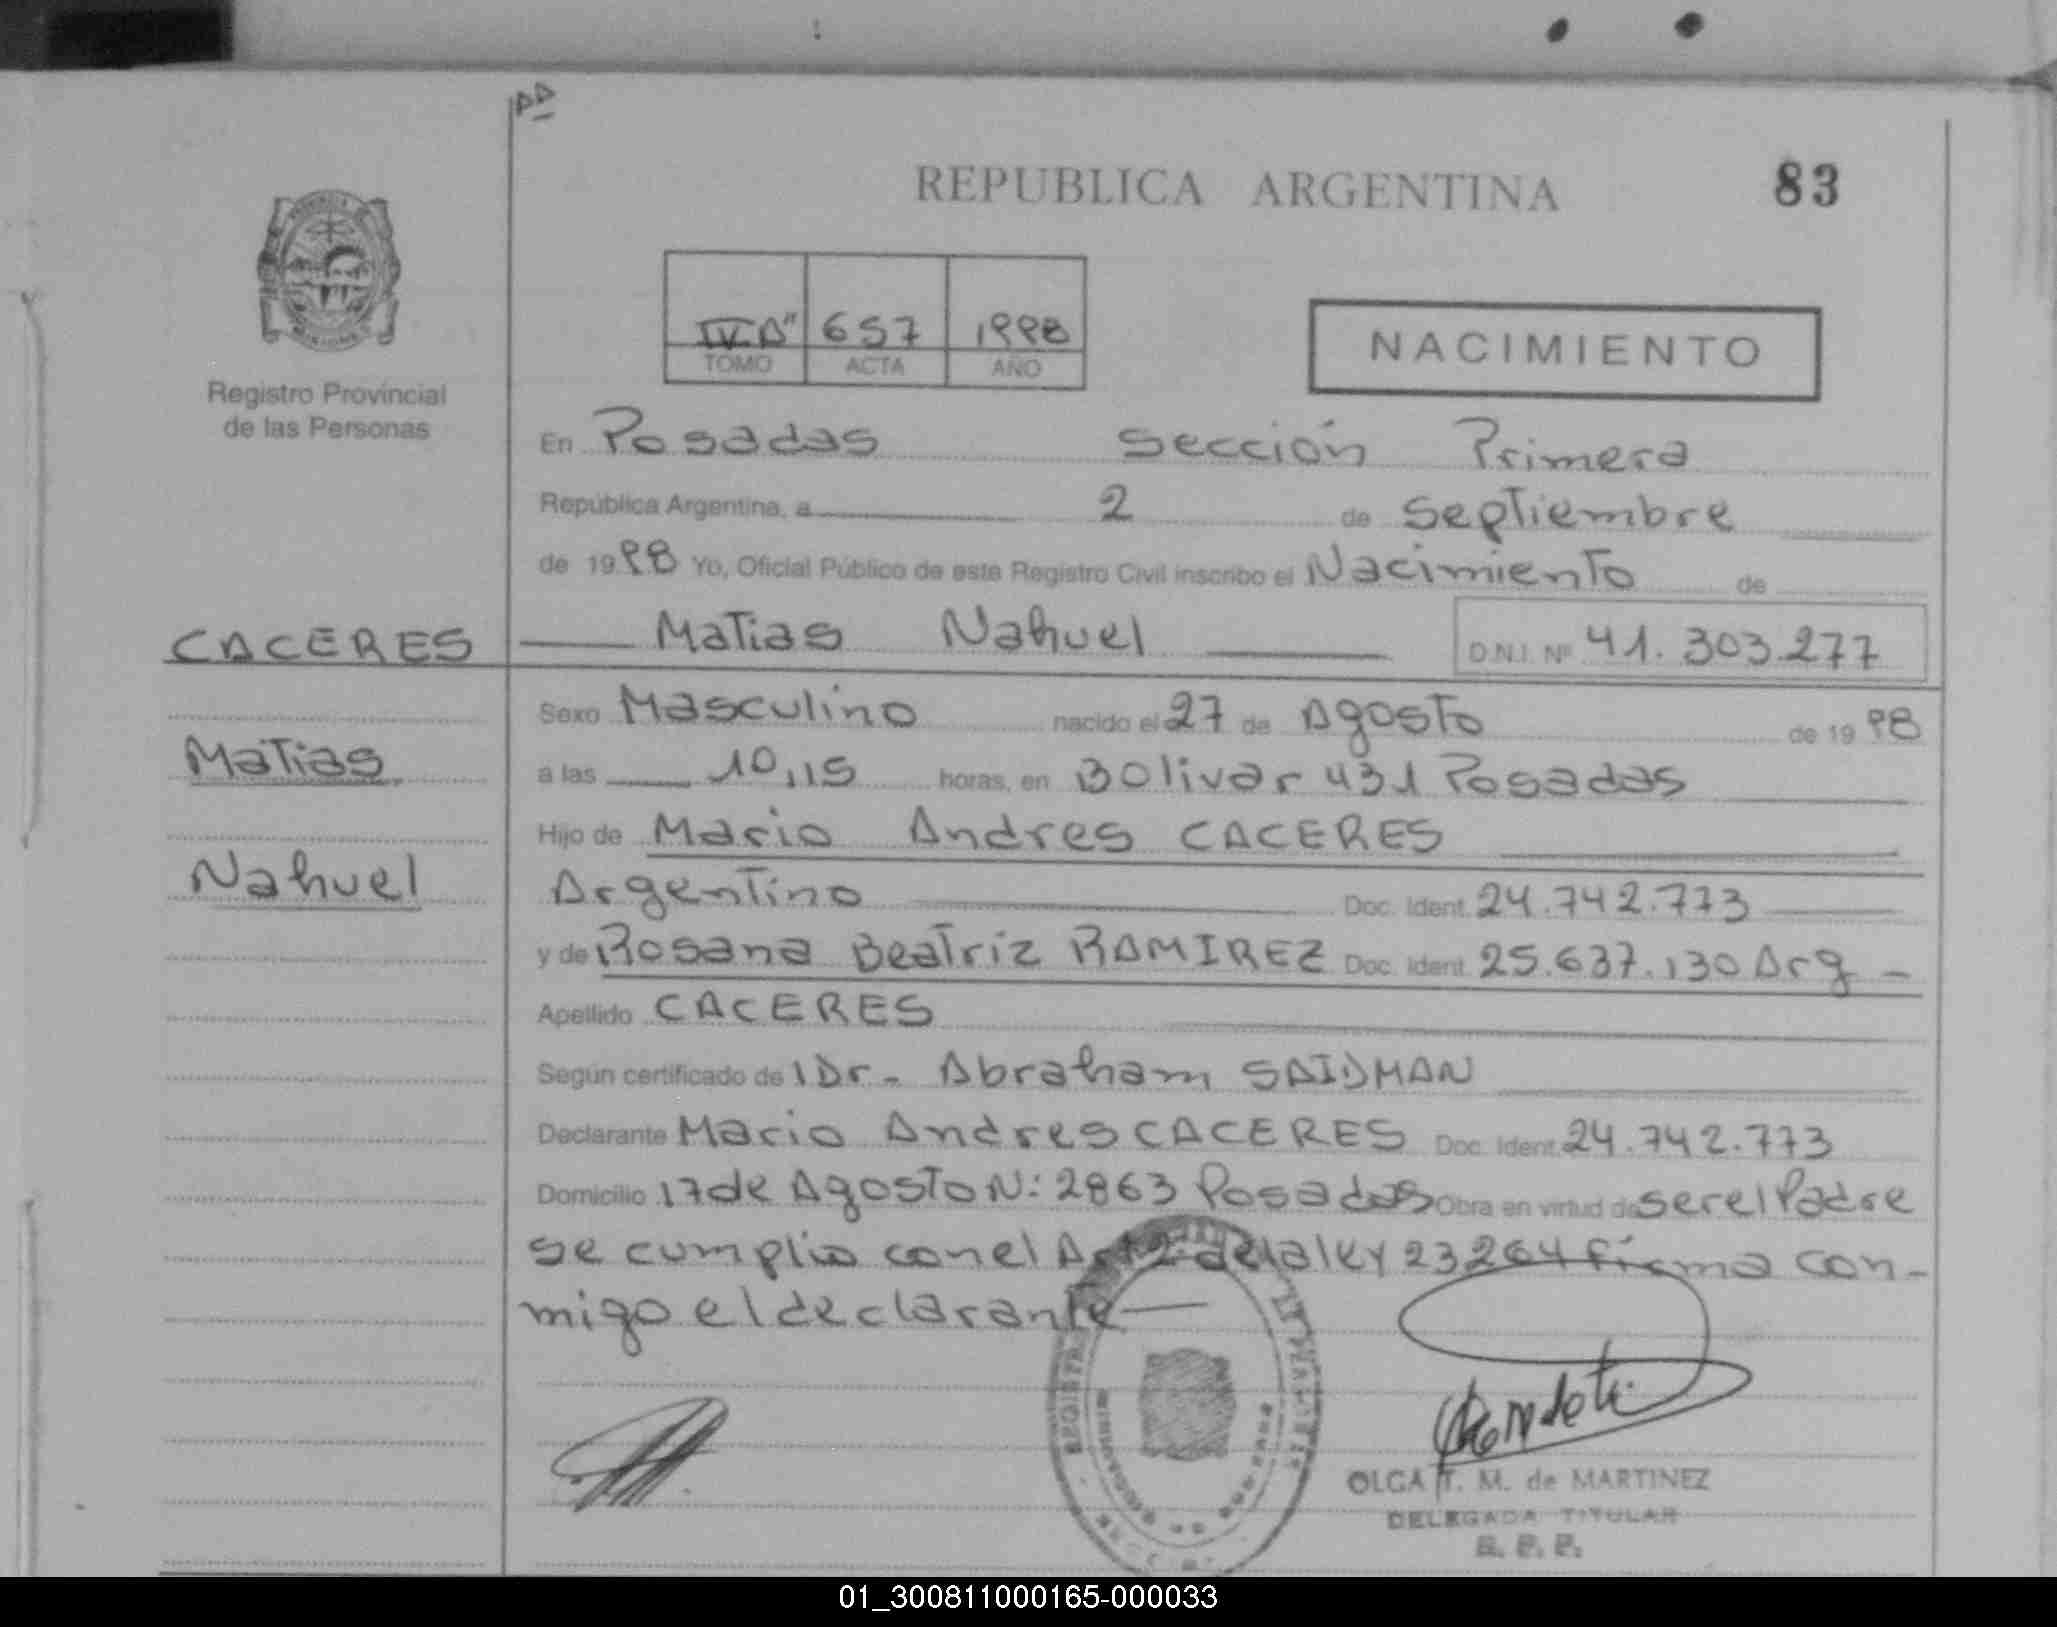 REPUBLICA ARGENTINA 83
Registro Provincial
de las Personas
IV A" 657 1998
TOMO ACTA AÑO
NACIMIENTO
En Posadas Sección Primera
República Argentina, a 2 de Septiembre
de 1998 Yo, Oficial Público de este Registro Civil inscribo el Nacimiento de
CACERES Matias Nahuel D.N.I. Nº 41.303.277
Sexo Masculino nacido el 27 de Agosto de 1998
Matias a las 10,15 horas, en Bolivar 431 Posadas
Hijo de Mario Andres CACERES
Nahuel Argentino Doc. Ident. 24.742.773
y de Rosana Beatriz RAMIREZ Doc. Ident. 25.637.130 Arg -
Apellido CACERES
Según certificado del Dr. Abraham SAIDMAN
Declarante Mario Andres CACERES Doc. Ident. 24.742.773
Domicilio 17 de Agosto N: 2863 Posadas Obra en virtud de ser el Padre
se cumplio con el Art 2 de la ley 23264 firma con-
migo el declarante
OLGA T. M. de MARTINEZ
DELEGADA TITULAR
R. P. P.
01_300811000165-000033